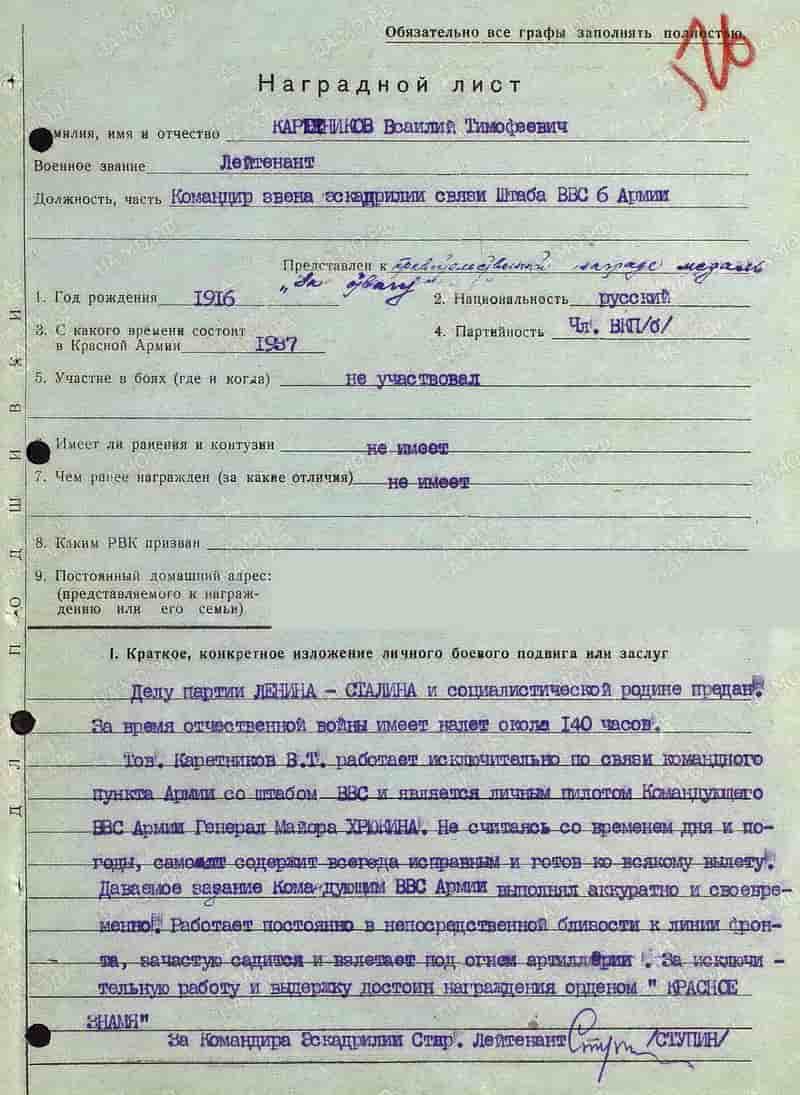 Обязательно все графы заполнять полностью.
Наградной лист
милия, имя и отчество КАРЕТНИКОВ Всаилий Тимофеевич
Военное звание Лейтенант
Должность, часть Командир звена эскадрилии связи Штаба ВВС 6 Армии
Представлен к правительственной награде медаль
"За отвагу"
1. Год рождения 1916 2. Национальность русский
3. С какого времени состоит
в Красной Армии 1937 4. Партийность Чл. ВКП/б/
5. Участие в боях (где и когда) не участвовал
Имеет ли ранения и контузии не имеет
7. Чем ранее награжден (за какие отличия) не имеет
8. Каким РВК призван
9. Постоянный домашний адрес:
(представляемого к награж-
дению или его семьи)
I. Краткое, конкретное изложение личного боевого подвига или заслуг
Делу партии ЛЕНИНА - СТАЛИНА и социалистической родине предан.
За время отчественной войны имеет налет окола 140 часов.
Тов. Каретников В.Т. работает исключительно по связи командного
пункта Армии со штабом ВВС и является личным пилотом Командующего
ВВС Армии Генерал Майора ХРЮКИНА. Не считаясь со временем дня и по-
годы, самолят содержит всегеда исправным и готов ко всякому вылету.
Даваемое задание Кома-дующим ВВС Армии выполнял аккуратно и своевре-
менно. Работает постоянно в непосредственной бливости к линии фрон-
та, зачастую садится и взлетает под огнем артиллерии . За исключи -
тельную работу и выдержку достоин награждения орденом " КРАСНОЕ
ЗНАМЯ"
За Командира Эскадрилии Стар. Лейтенант /СТУПИН/
ДЛЯ ПОДШИВКИ